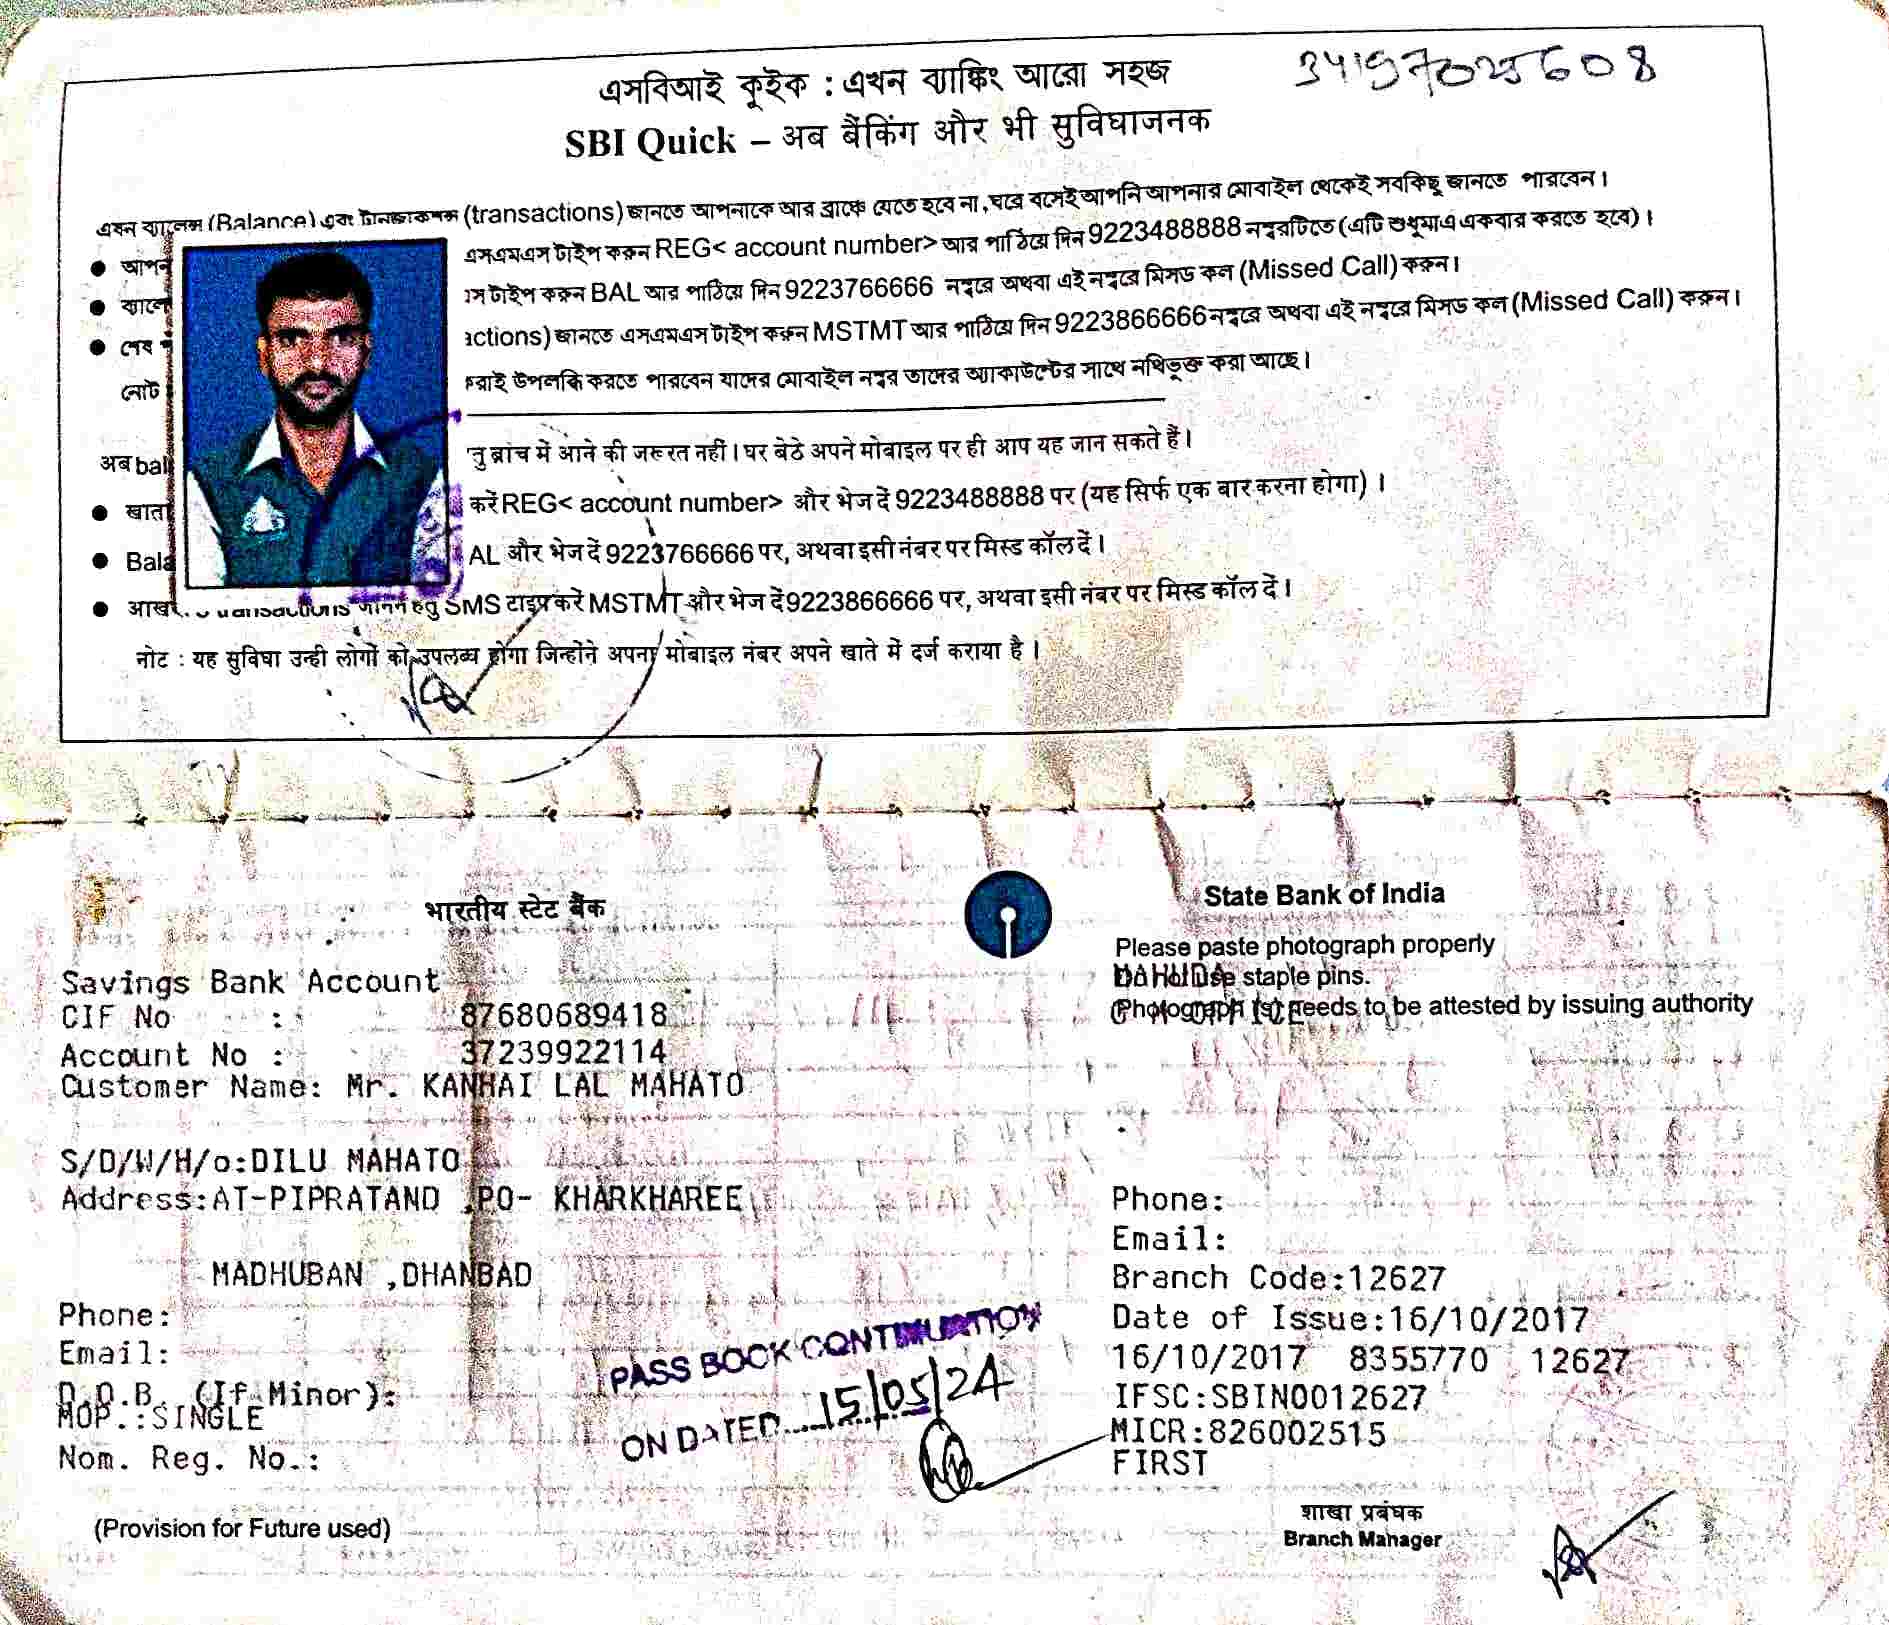 এসবিআই কুইক : এখন ব্যাঙ্কিং আরো সহজ
34197025608
SBI Quick – अब बैंकिंग और भी सुविधाजनक
এখন ব্যালেন্স (Balance) এবং ট্রানজাকশন্স (transactions) জানতে আপনাকে আর ব্রাঞ্চে যেতে হবে না, ঘরে বসেই আপনি আপনার মোবাইল থেকেই সবকিছু জানতে পারবেন।
● আপন এসএমএস টাইপ করুন REG< account number> আর পাঠিয়ে দিন 9223488888 নম্বরটিতে (এটি শুধুমাএ একবার করতে হবে)।
● ব্যালে স টাইপ করুন BAL আর পাঠিয়ে দিন 9223766666 নম্বরে অথবা এই নম্বরে মিসড কল (Missed Call) করুন।
● শেষ actions) জানতে এসএমএস টাইপ করুন MSTMT আর পাঠিয়ে দিন 9223866666 নম্বরে অথবা এই নম্বরে মিসড কল (Missed Call) করুন।
নোট করাই উপলব্ধি করতে পারবেন যাদের মোবাইল নম্বর তাদের অ্যাকাউন্টের সাথে নথিভুক্ত করা আছে।
अब bal तु ब्रांच में आने की जरूरत नहीं। घर बेठे अपने मोबाइल पर ही आप यह जान सकते हैं।
● खाता करें REG< account number> और भेज दें 9223488888 पर (यह सिर्फ एक बार करना होगा) ।
● Bala AL और भेज दें 9223766666 पर, अथवा इसी नंबर पर मिस्ड कॉल दें।
● आखर transactions जानने हेतु SMS टाइप करें MSTMT और भेज दें 9223866666 पर, अथवा इसी नंबर पर मिस्ड कॉल दें।
नोट : यह सुविधा उन्ही लोगों को उपलब्ध होगा जिन्होंने अपना मोबाइल नंबर अपने खाते में दर्ज कराया है।
भारतीय स्टेट बैंक
State Bank of India
Please paste photograph properly
Do not use staple pins.
MAHUDA
Photograph (s) needs to be attested by issuing authority
Savings Bank Account
CIF No : 87680689418
Account No : 37239922114
Customer Name: Mr. KANHAI LAL MAHATO
S/D/W/H/o:DILU MAHATO
Address:AT-PIPRATAND ,PO- KHARKHAREE
MADHUBAN ,DHANBAD
Phone:
Email:
D.O.B. (If Minor):
MOP.:SINGLE
Nom. Reg. No.:
(Provision for Future used)
PASS BOOK CONTINUATION
ON DATED 15/05/24
Phone:
Email:
Branch Code:12627
Date of Issue:16/10/2017
16/10/2017 8355770 12627
IFSC:SBIN0012627
MICR:826002515
FIRST
शाखा प्रबंधक
Branch Manager